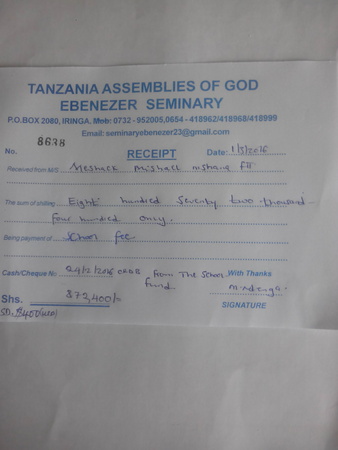 TANZANIA ASSEMBLIES OF GOD
EBENEZER SEMINARY
P.O.BOX 2080, IRINGA, Mob: 0732 - 952005,0654 - 418962/418968/418999
Email: seminaryebenezer23@gmail.com
No. 8638 RECEIPT Date: 1/3/2016
Received from M/S Meshack Mishael
The sum of shilling Eight hundred Seventy two thousand
four hundred only.
Being payment of School fee
Cash/Cheque No 24/2/2016 CRDB from The School With Thanks
fund
Shs. 872,400/=
SIGNATURE